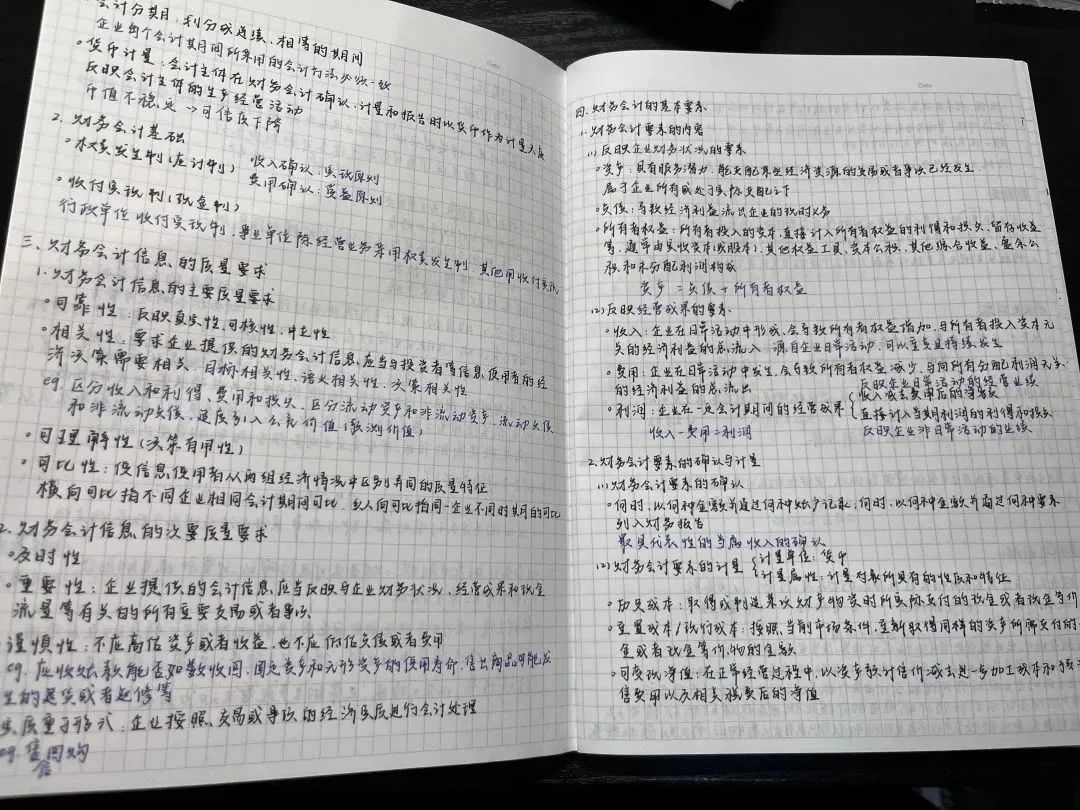 会计分期,划分成连续、相等的期间
企业每个会计期间所采用的会计方法必须一致
。货币计量:会计主体在财务会计确认、计量和报告时以货币作为计量尺度
反映会计主体的生产经营活动
币值不稳定→可信度下降
2. 财务会计基础
。权责发生制(应计制) 收入确认:实现原则
费用确认:
。收付实现制(现金制)
行政单位收付实现制,事业单位除经营业务采用权责发生制,其他用收付实现
三、财务会计信息的质量要求
1. 财务会计信息的主要质量要求
。可靠性:反映真实性、可核性、中立性
。相关性:要求企业提供的财务会计信息应当与投资者等信息使用者的经
济决策需要相关,目标相关性、语义相关性、决策相关性
eg. 区分收入和利得、费用和损失,区分流动资产和非流动资产、流动负债
和非流动负债,适度引入公允价值(预测价值)
。可理解性(决策有用性)
。可比性:使信息使用者从两组经济情况中区别异同的质量特征
横向可比指不同企业相同会计期间可比,纵向可比指同一企业不同时期的可比
2. 财务会计信息的次要质量要求
。及时性
。重要性:企业提供的会计信息应当反映与企业财务状况、经营成果和现金
流量等有关的所有重要交易或者事项
谨慎性:不应高估资产或者收益,也不应低估负债或者费用
eg. 应收账款能否如数收回,固定资产和无形资产的使用寿命,售出商品可能发
生的退货或者返修等
实质重于形式:企业按照交易或事项的经济实质进行会计处理
eg. 售后回购
四、财务会计的基本要素
1. 财务会计要素的内容
(1) 反映企业财务状况的要素
。资产:具有服务潜力,能支配某些经济资源的交易或者事项已经发生
属于企业所有或处于实际支配之下
。负债:导致经济利益流出企业的现时义务
。所有者权益:所有者投入的资本、直接计入所有者权益的利得和损失、留存收益
等,通常由实收资本(或股本)、其他权益工具、资本公积、其他综合收益、盈余公
积和未分配利润构成
资产=负债+所有者权益
(2) 反映经营成果的要素
。收入:企业在日常活动中形成、会导致所有者权益增加、与所有者投入资本无
关的经济利益的总流入 源自企业日常活动,可以重复且持续发生
。费用:企业在日常活动中发生、会导致所有者权益减少、与向所有者分配利润无关
的经济利益的总流出
反映企业日常活动的经营业绩
。利润:企业在一定会计期间的经营成果 { 收入减去费用后的净额
直接计入当期利润的利得和损失
收入-费用=利润 反映企业非日常活动的业绩
2. 财务会计要素的确认与计量
(1) 财务会计要素的确认
。何时、以何种金额并通过何种账户记录;何时、以何种金额并通过何种要素
列入财务报告
最具代表性的当属收入的确认
(2) 财务会计要素的计量 { 计量单位:货币
计量属性:计量对象所具有的性质和特征
。历史成本:取得或制造某项财产物资时所实际支付的现金或者现金等价
。重置成本/现行成本:按照当前市场条件,重新取得同样的资产所需支付的现
金或者现金等价物的金额
。可变现净值:在正常经营过程中,以资产预计售价减去进一步加工成本和预计
售费用以及相关税费后的净值